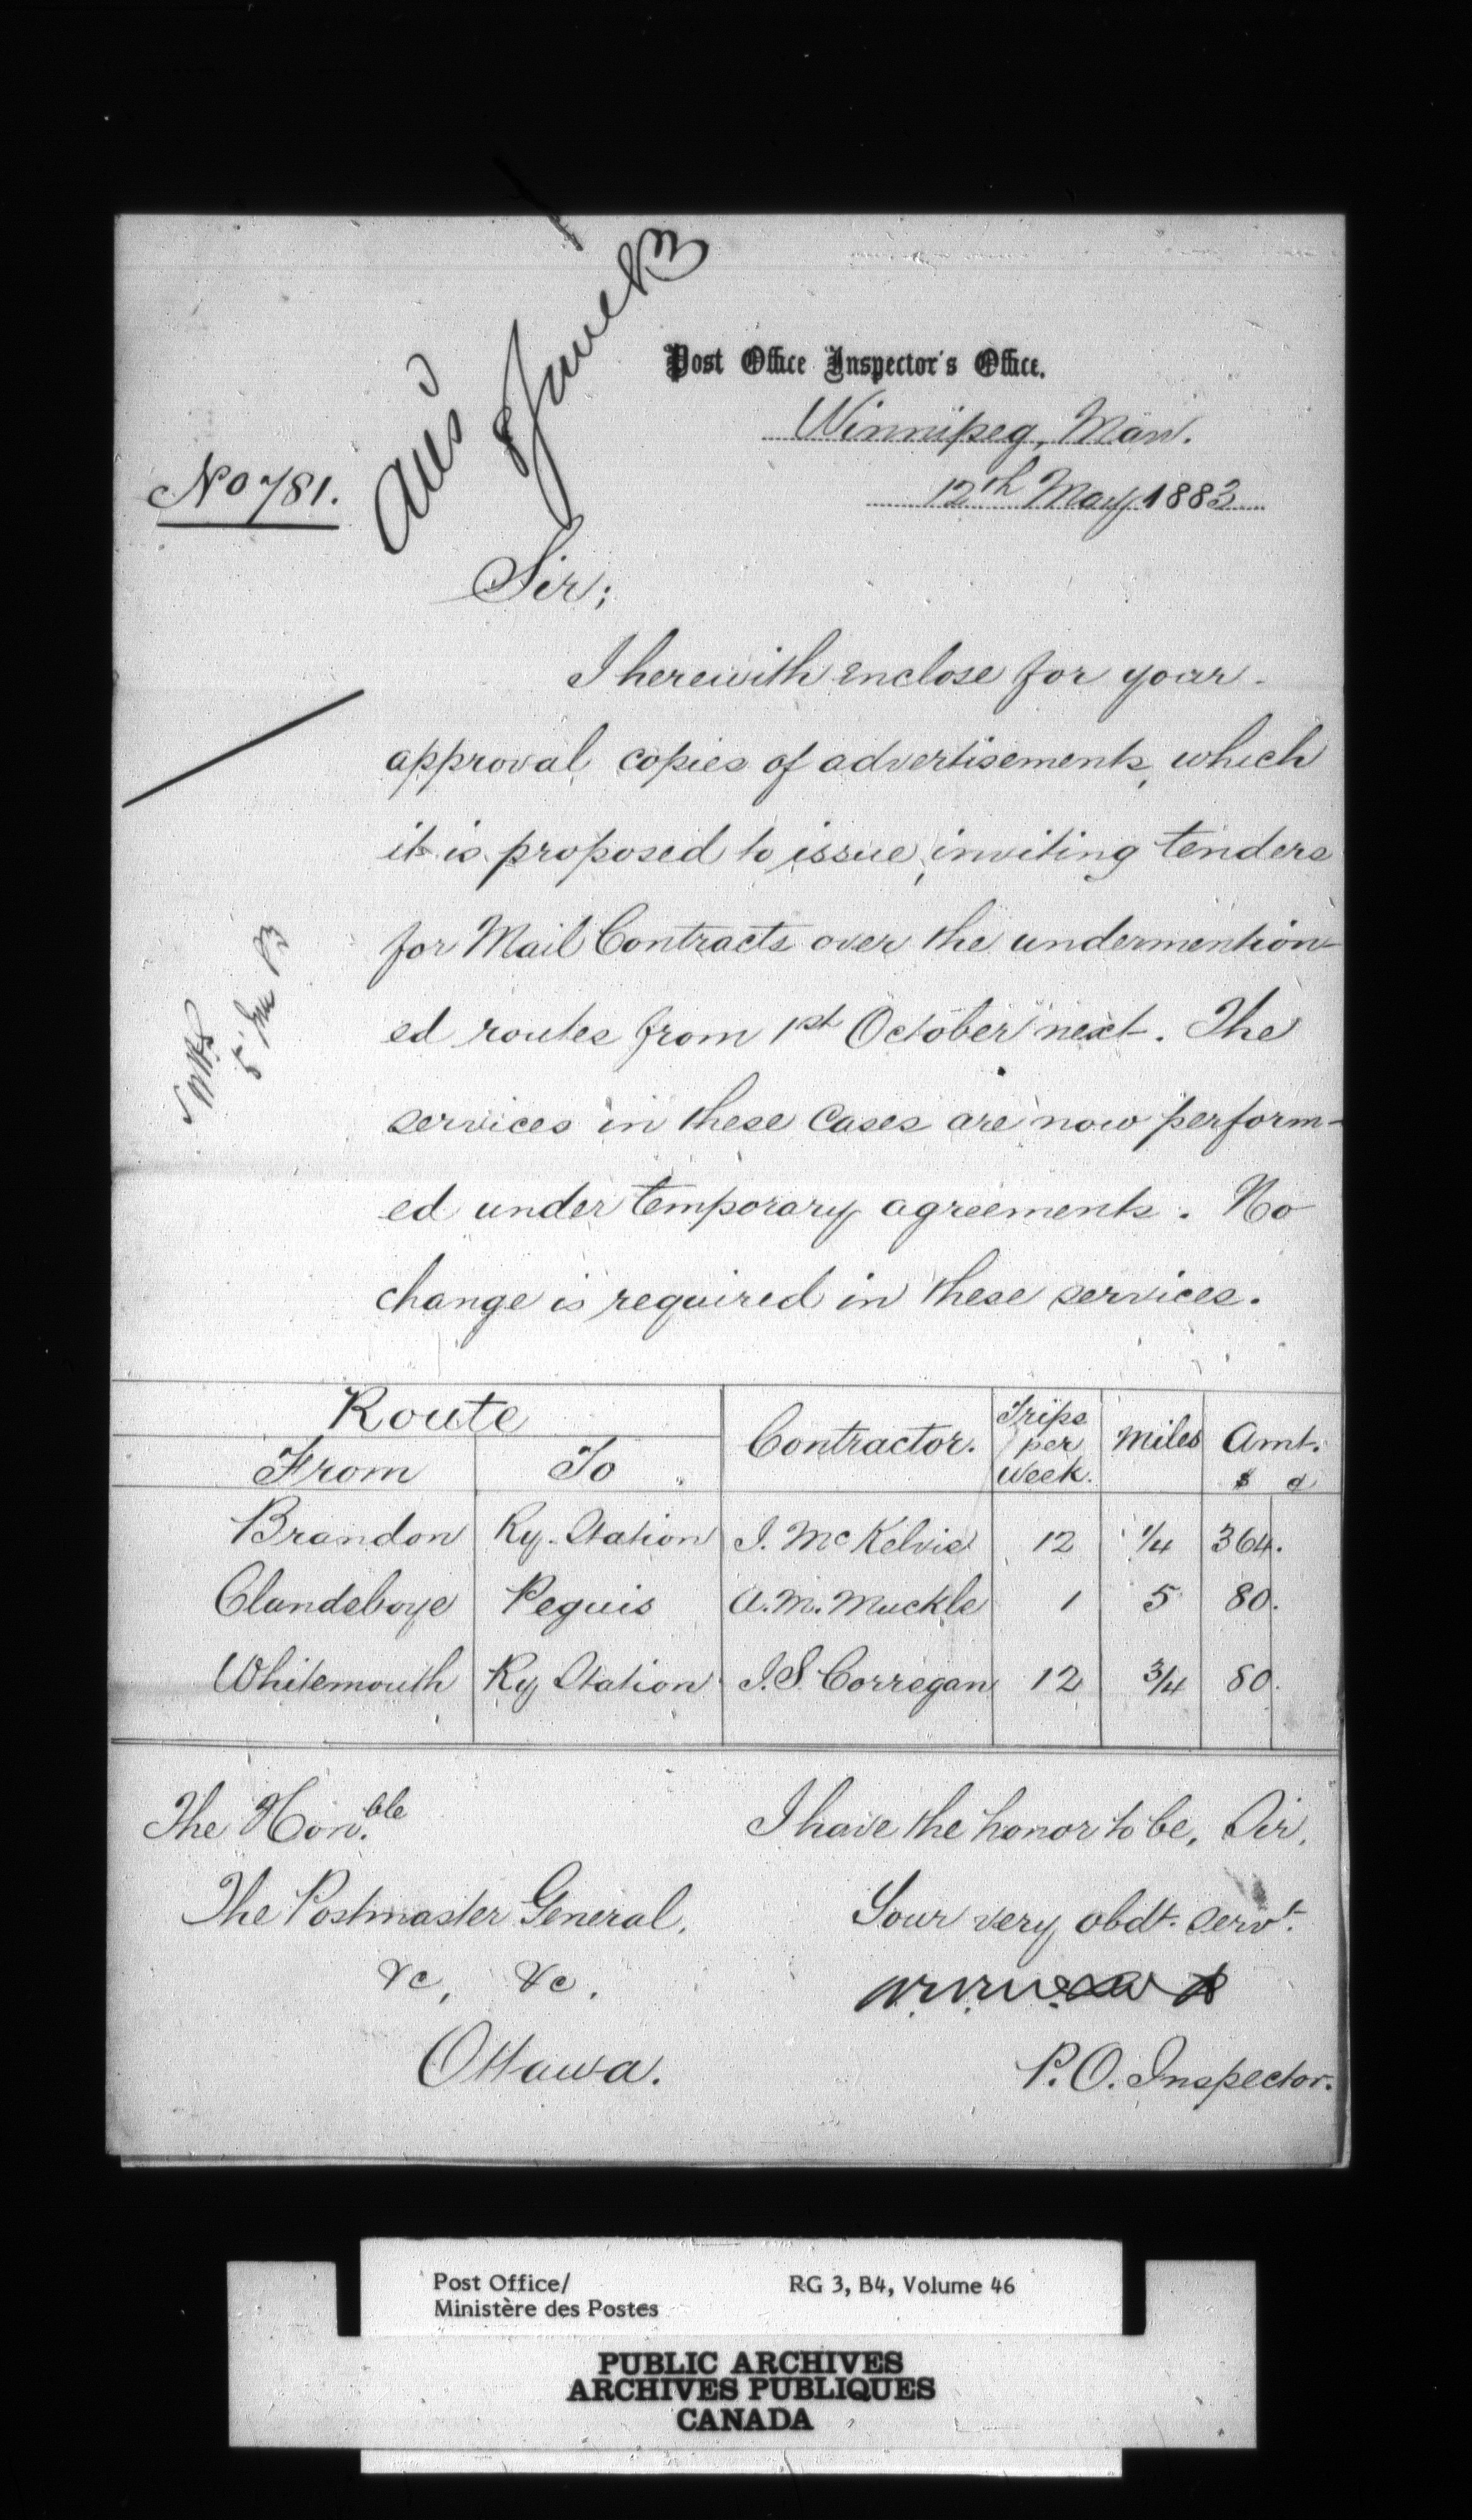 Ans'd
8 June 83
Post Office Inspector's Office.
Winnipeg, Man.
No 781.
12th May 1883
Sir;
I herewith enclose for your
approval copies of advertisements, which
it is proposed to issue, inviting tenders
for Mail Contracts over the undermention-
ed routes from 1st October next. The
services in these Cases are now perform-
ed under temporary agreements. No
change is required in these services.
Route Contractor. Trips per Week. Miles Amt.
From To $ c
Brandon Ry. Station J. McKelvie 12 1/4 364.
Clandeboye Peguis A. M. Muckle 1 5 80.
Whitemouth Ry Station J. S. Corregan 12 3/4 80.
The Hon.ble I have the honor to be, Sir,
The Postmaster General, Your very obdt. servt.
&c, &c.
Ottawa. P. O. Inspector.
Post Office/ RG 3, B4, Volume 46
Ministère des Postes
PUBLIC ARCHIVES
ARCHIVES PUBLIQUES
CANADA